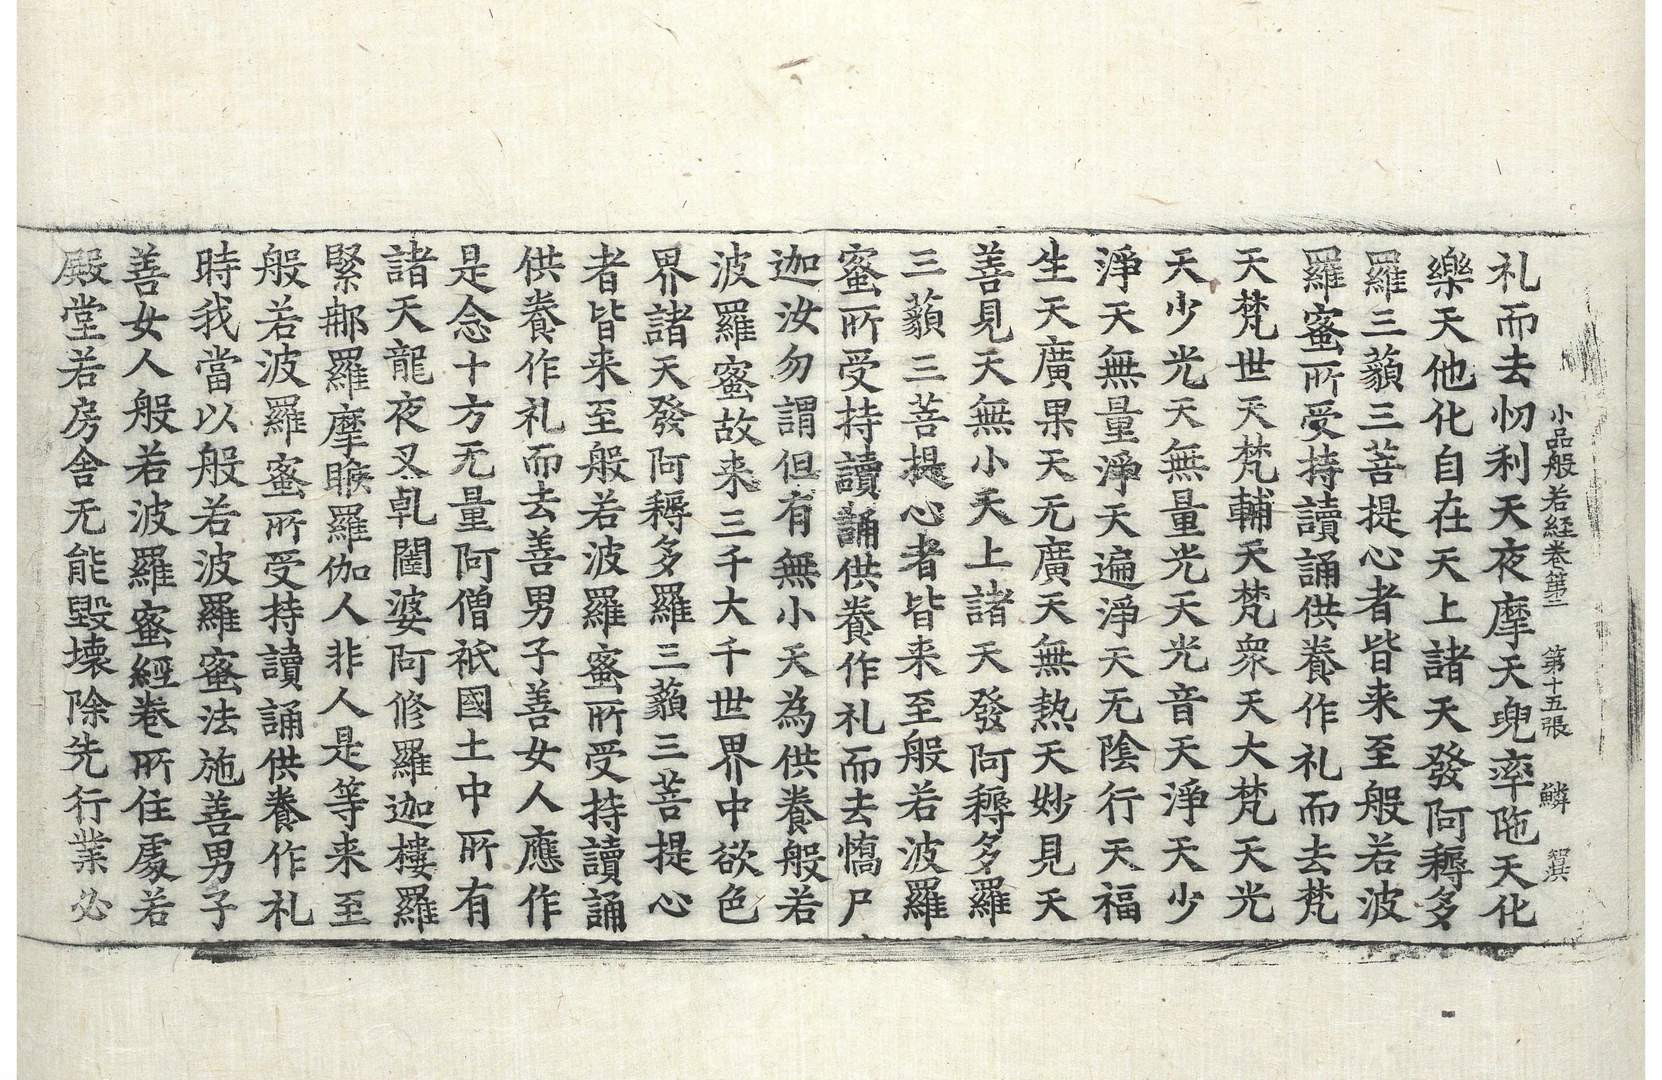 小品般若経卷第二 第十五張 鱗
礼而去忉利天夜摩天兜率陁天化
樂天他化自在天上諸天發阿耨多
羅三藐三菩提心者皆来至般若波
羅蜜所受持讀誦供養作礼而去梵
天梵世天梵輔天梵衆天大梵天光
天少光天無量光天光音天淨天少
淨天無量淨天遍淨天无陰行天福
生天廣果天无廣天無熱天妙見天
善見天無小天上諸天發阿耨多羅
三藐三菩提心者皆来至般若波羅
蜜所受持讀誦供養作礼而去憍尸
迦汝勿謂但有無小天為供養般若
波羅蜜故来三千大千世界中欲色
界諸天發阿耨多羅三藐三菩提心
者皆来至般若波羅蜜所受持讀誦
供養作礼而去善男子善女人應作
是念十方无量阿僧祇國土中所有
諸天龍夜叉乹闥婆阿修羅迦樓羅
緊那羅摩睺羅伽人非人是等来至
般若波羅蜜所受持讀誦供養作礼
時我當以般若波羅蜜法施善男子
善女人般若波羅蜜經卷所住處若
殿堂若房舍无能毀壞除先行業必